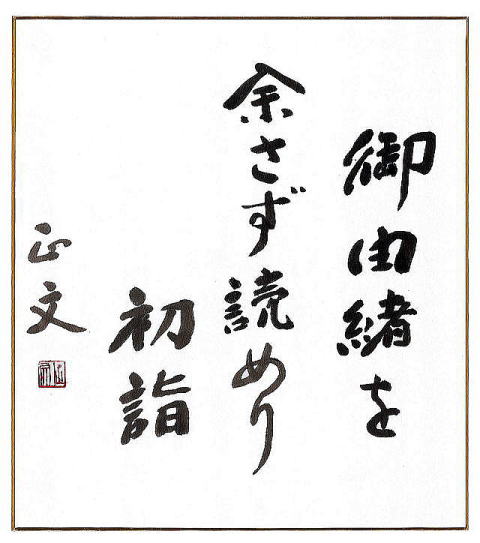 御由緒を
余さず読めり
初詣
正文